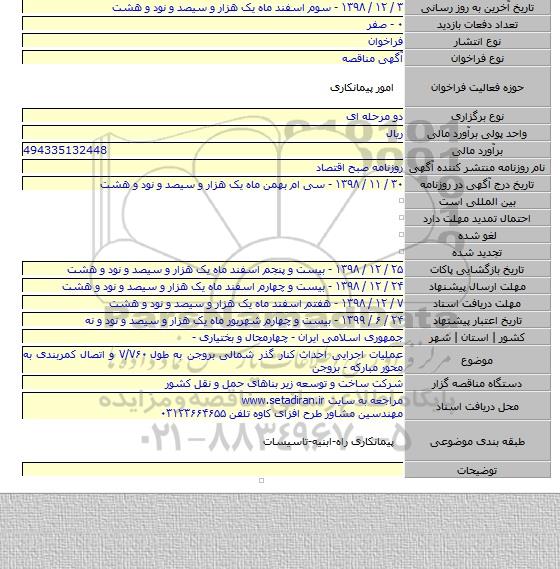 تاریخ آخرین به روز رسانی ۳ / ۱۲ / ۱۳۹۸ - سوم اسفند ماه یک هزار و سیصد و نود و هشت
تعداد دفعات بازدید ۰ - صفر
نوع انتشار فراخوان
نوع فراخوان آگهی مناقصه
حوزه فعالیت فراخوان امور پیمانکاری
نوع برگزاری دو مرحله ای
واحد پولی برآورد مالی ریال
برآورد مالی 494335132448
نام روزنامه منتشر کننده آگهی روزنامه صبح اقتصاد
تاریخ درج آگهی در روزنامه ۳۰ / ۱۱ / ۱۳۹۸ - سی ام بهمن ماه یک هزار و سیصد و نود و هشت
بین المللی است
احتمال تمدید مهلت دارد
لغو شده
تجدید شده
تاریخ بازگشایی پاکات ۲۵ / ۱۲ / ۱۳۹۸ - بیست و پنجم اسفند ماه یک هزار و سیصد و نود و هشت
مهلت ارسال پیشنهاد ۲۴ / ۱۲ / ۱۳۹۸ - بیست و چهارم اسفند ماه یک هزار و سیصد و نود و هشت
مهلت دریافت اسناد ۷ / ۱۲ / ۱۳۹۸ - هفتم اسفند ماه یک هزار و سیصد و نود و هشت
تاریخ اعتبار پیشنهاد ۲۴ / ۶ / ۱۳۹۹ - بیست و چهارم شهریور ماه یک هزار و سیصد و نود و نه
کشور | استان | شهر جمهوری اسلامی ایران - چهارمحال و بختیاری -
موضوع عملیات اجرایی احداث کنار گذر شمالی بروجن به طول ۷/۷۶۰ و اتصال کمربندی به
محور مبارکه - بروجن
دستگاه مناقصه گزار شرکت ساخت و توسعه زیر بناهای حمل و نقل کشور
محل دریافت اسناد مراجعه به سایت www.setadiran.ir
مهندسین مشاور طرح افزای کاوه تلفن ۰۳۱۳۳۶۶۴۶۵۵
طبقه بندی موضوعی پیمانکاری راه-ابنیه-تاسیسات
توضیحات
۰۲۱-۸۸۳۴۹۶۷۰-۵